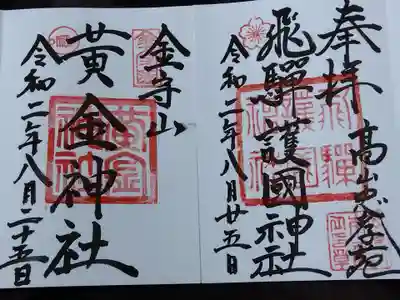 奉拝
高山忠孝苑
飛驒護國神社
令和二年八月廿五日
金寺山
黄金神社
令和二年八月二十五日